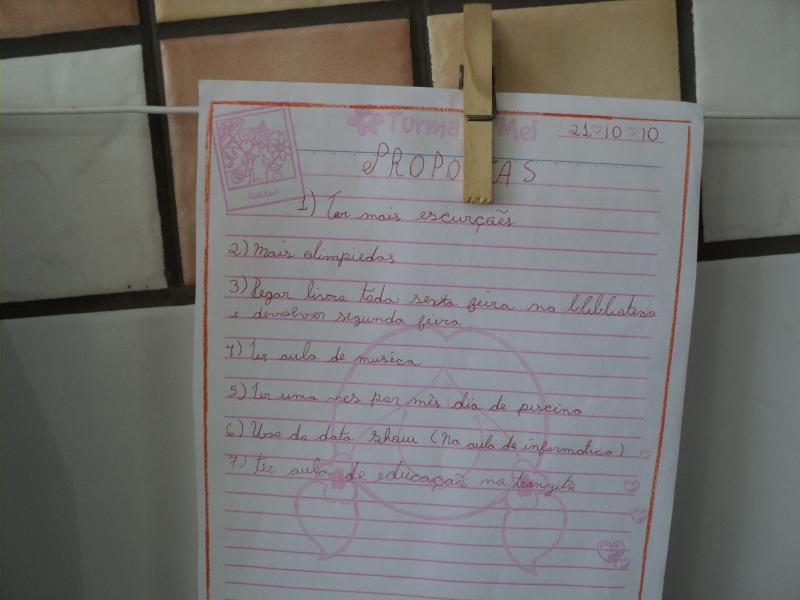 Turma Mel
21 10 10
PROPO AS
1) Ter mais escurções
2) Mais olimpiedas
3) Pegar livro toda sexta feira na bliblioteca
e devolver segunda feira
4) Ter aula de musica
5) Ter uma ves por mês dia de piscina
6) Uso do data show (na aula de informatica)
7) Ter aula de educação no tranzito